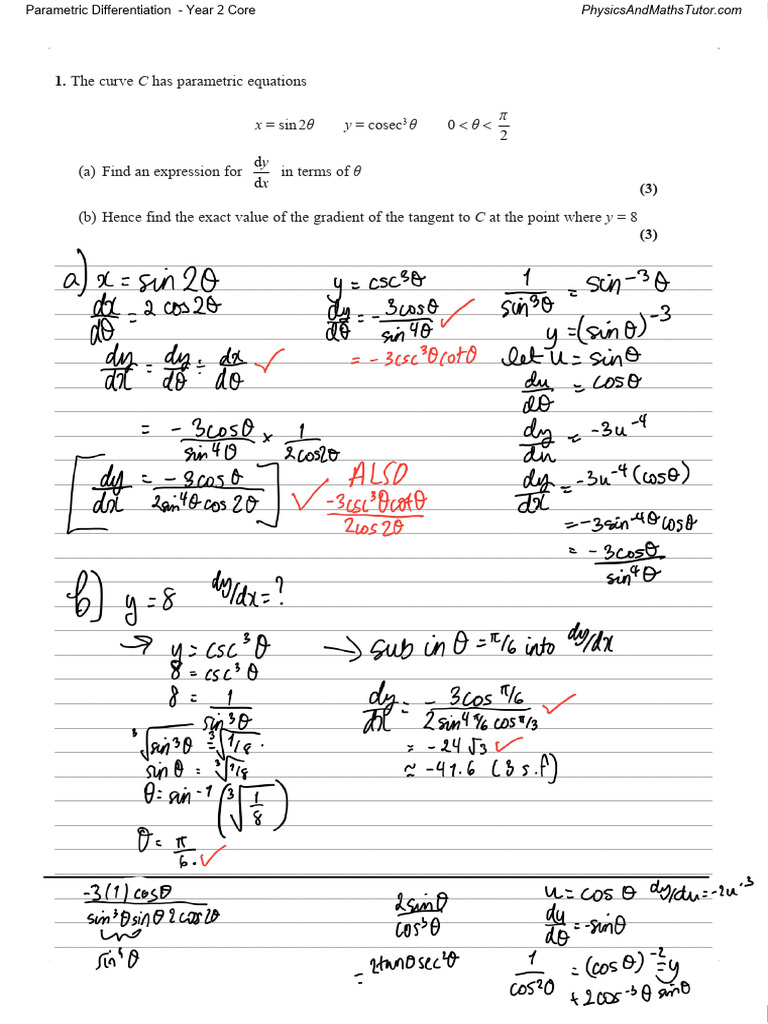 Parametric Differentiation - Year 2 Core PhysicsAndMathsTutor.com
1. The curve C has parametric equations
x = sin 2θ y = cosec³ θ 0 < θ < π/2
(a) Find an expression for dy/dx in terms of θ
(3)
(b) Hence find the exact value of the gradient of the tangent to C at the point where y = 8
(3)
a) x = sin 2θ
dx/dθ = 2 cos 2θ
dy/dx = dy/dθ ÷ dx/dθ ✓
= -3cosθ/sin⁴θ × 1/2cos2θ
[dy/dx = -3cosθ/2sin⁴θ cos 2θ] ✓
y = csc³θ
dy/dθ = -3cosθ/sin⁴θ ✓
= -3csc³θcotθ
ALSO
-3csc³θcotθ/2cos2θ
1/sin³θ = sin⁻³θ
y = (sinθ)⁻³
let u = sinθ
du/dθ = cosθ
dy/du = -3u⁻⁴
dy/dx = -3u⁻⁴(cosθ)
= -3sin⁻⁴θ cosθ
= -3cosθ/sin⁴θ
b) y = 8 dy/dx = ?
→ y = csc³θ
8 = csc³θ
8 = 1/sin³θ
³√sin³θ = ³√1/8.
sinθ = ³√1/8
θ = sin⁻¹(³√1/8)
θ = π/6. ✓
→ sub in θ = π/6 into dy/dx
dy/dx = -3cos π/6 / 2sin⁴ π/6 cos π/3 ✓
= -24√3 ✓
≈ -41.6 (3 s.f)
-3(1)cosθ/sin³θsinθ2cos2θ
sin⁴θ
2sinθ/cos³θ
= 2tanθsec²θ
u = cosθ dy/du = -2u⁻³
du/dθ = -sinθ
1/cos²θ = (cosθ)⁻² = y
+2cos⁻³θ sinθ